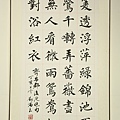 菱透浮萍綠錦池夏
鶯千囀弄薔薇盡日
無人看微雨鴛鴦相
對浴紅衣
齊安郡後池絕句